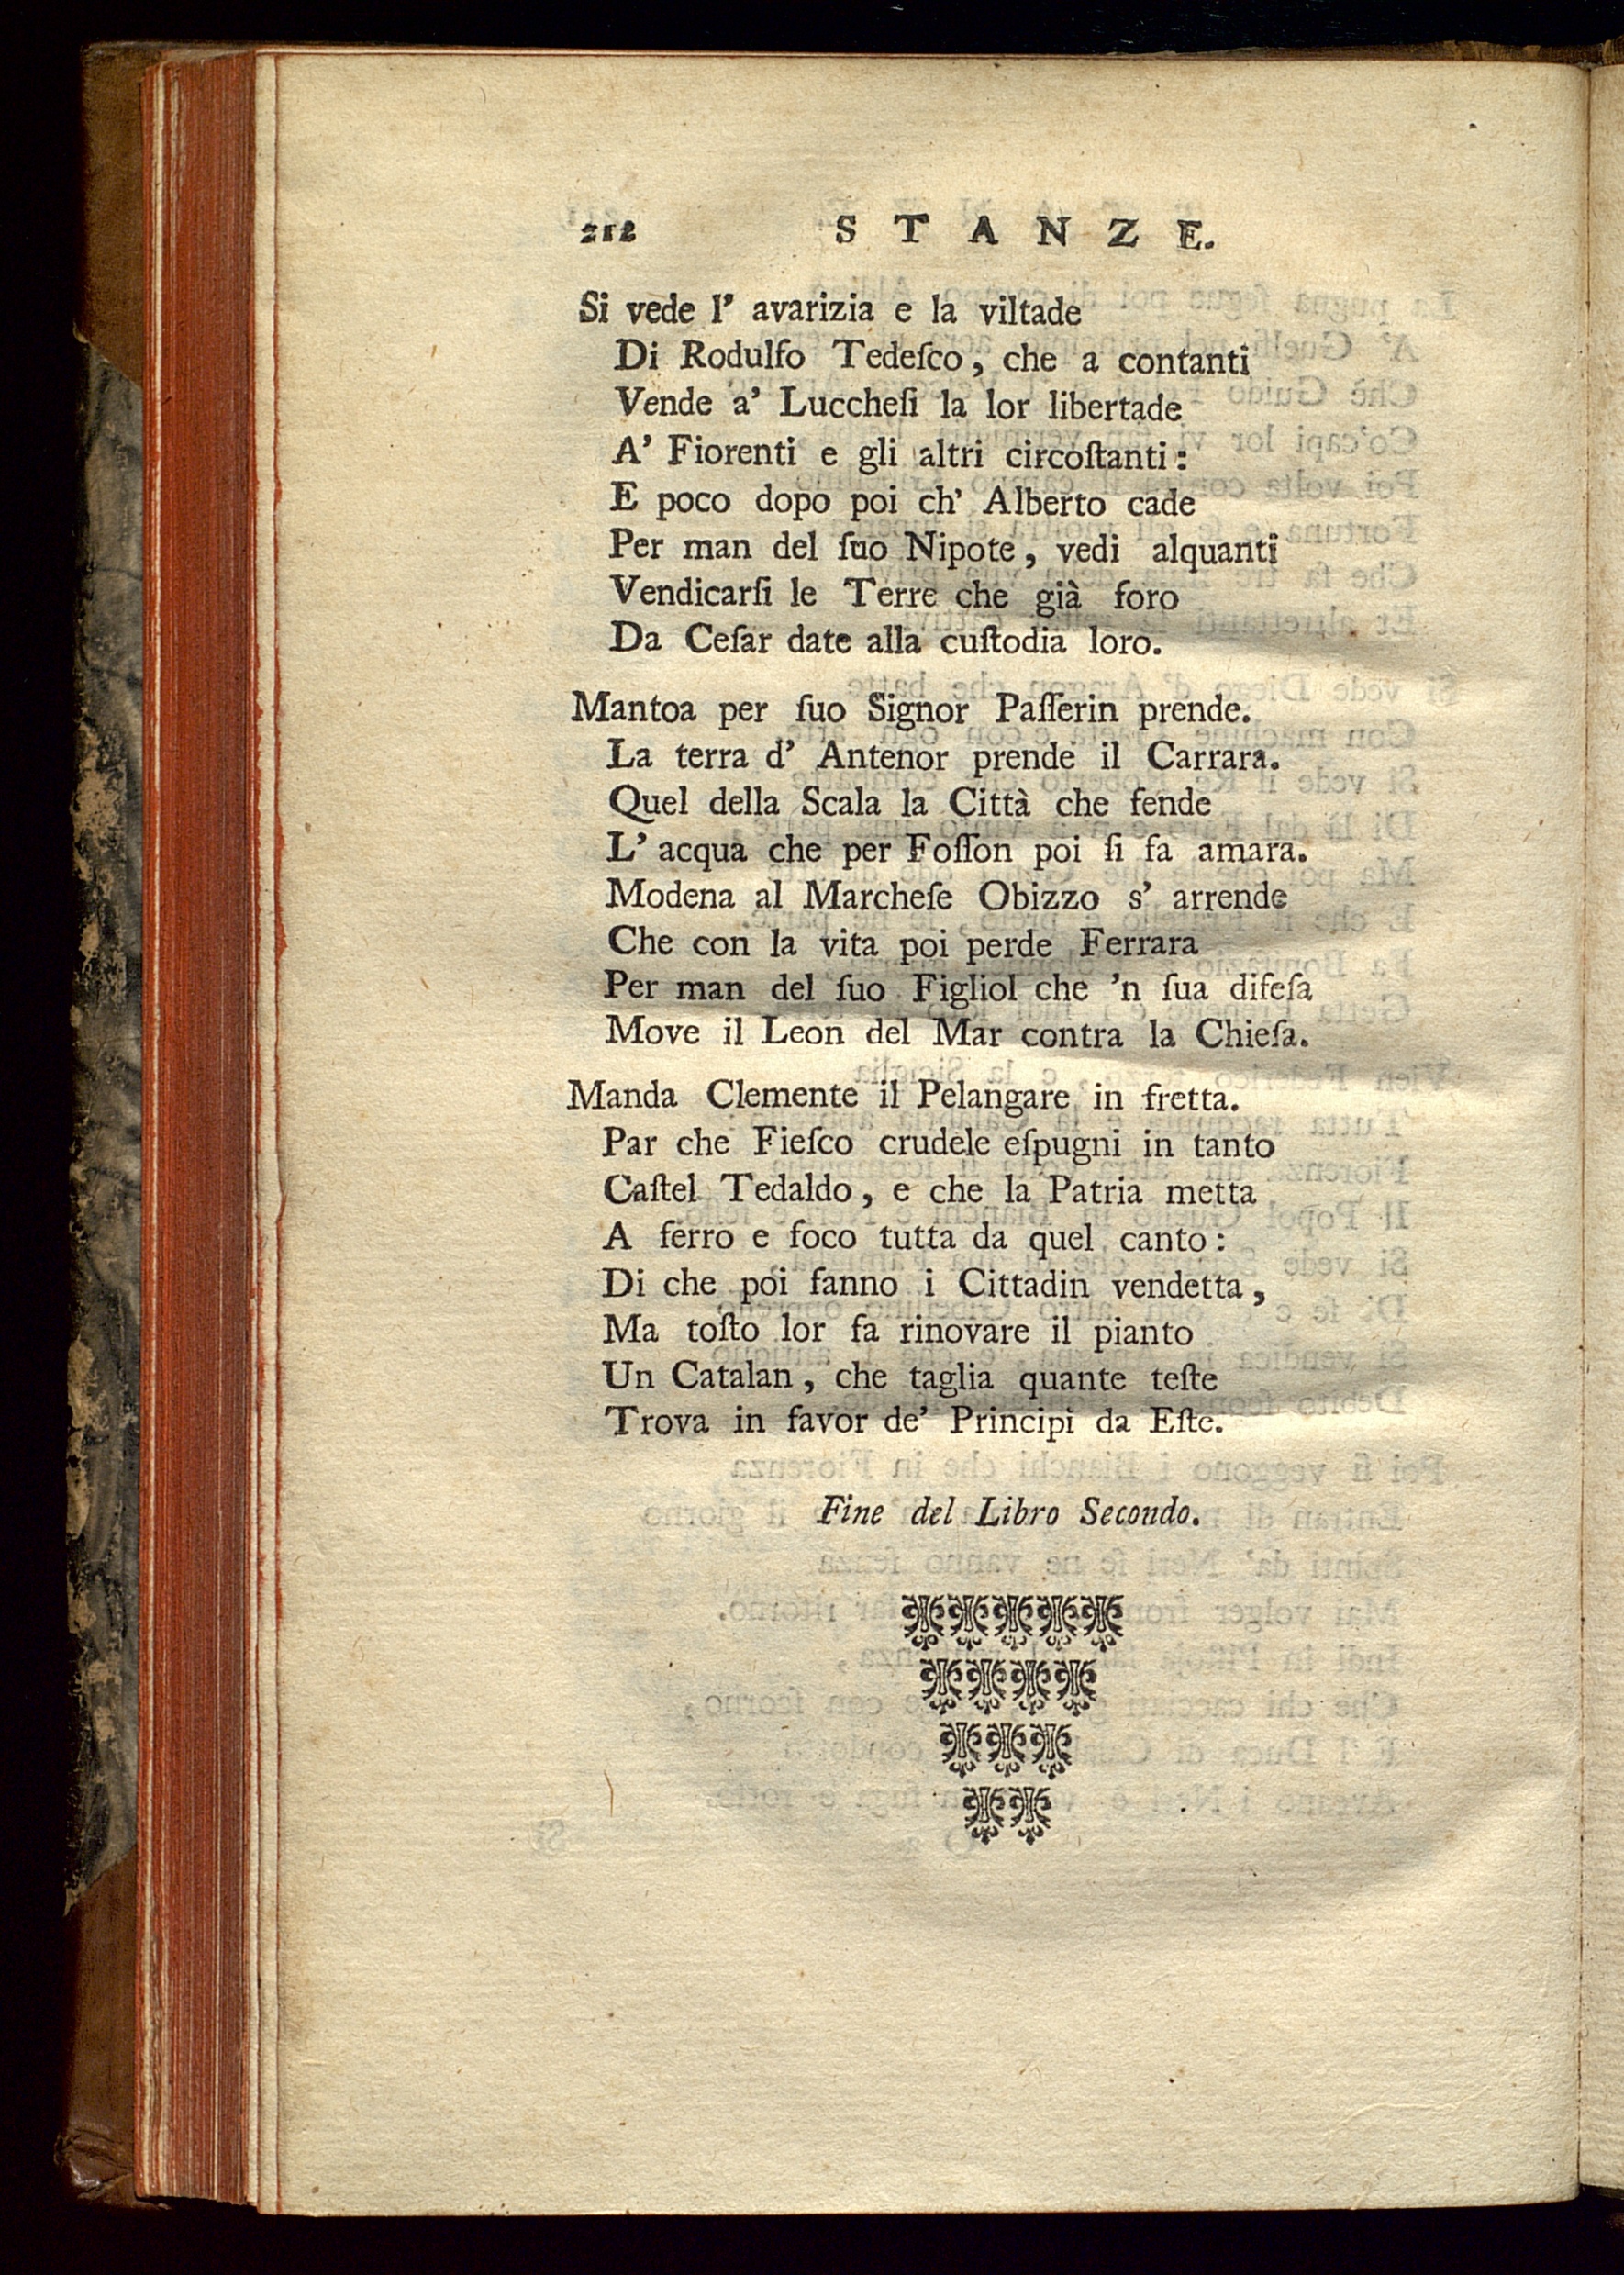 212 STANZE.
Si vede l' avarizia e la viltade
Di Rodulfo Tedeſco, che a contanti
Vende a' Luccheſi la lor libertade
A' Fiorenti e gli altri circoſtanti:
E poco dopo poi ch' Alberto cade
Per man del ſuo Nipote, vedi alquanti
Vendicarſi le Terre che già foro
Da Ceſar date alla cuſtodia loro.
Mantoa per ſuo Signor Paſſerin prende.
La terra d' Antenor prende il Carrara.
Quel della Scala la Città che fende
L' acqua che per Foſſon poi ſi fa amara.
Modena al Marcheſe Obizzo s' arrende
Che con la vita poi perde Ferrara
Per man del ſuo Figliol che 'n ſua difeſa
Move il Leon del Mar contra la Chieſa.
Manda Clemente il Pelangare in fretta.
Par che Fieſco crudele eſpugni in tanto
Caſtel Tedaldo, e che la Patria metta
A ferro e foco tutta da quel canto:
Di che poi fanno i Cittadin vendetta,
Ma toſto lor fa rinovare il pianto
Un Catalan, che taglia quante teſte
Trova in favor de' Principi da Eſte.
Fine del Libro Secondo.